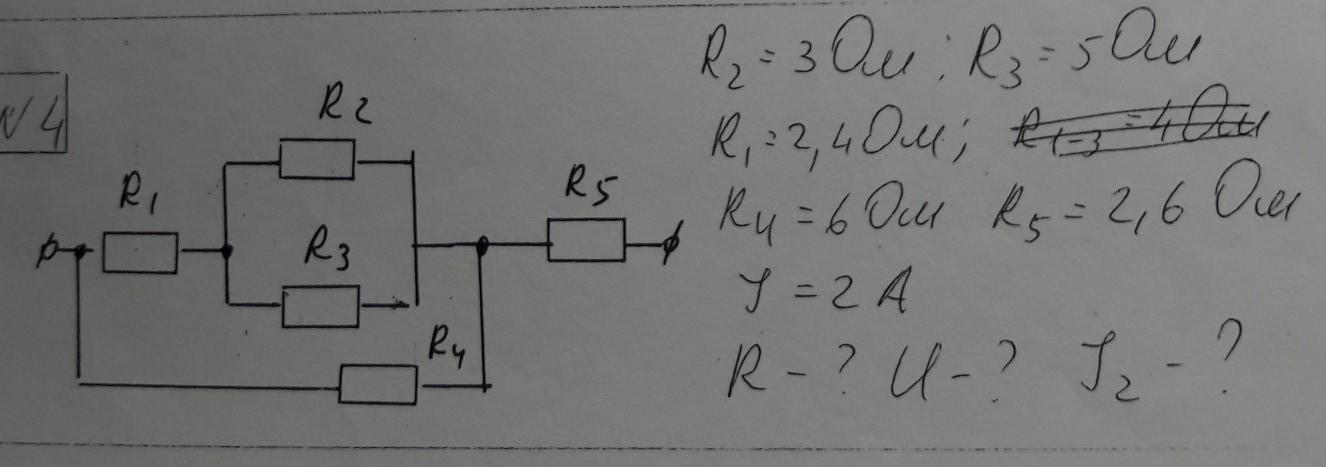 N4
R2
R1
R3
R5
R4
R2 = 3 Ом; R3 = 5 Ом
R1 = 2,4 Ом; R1-3 = 4 Ом
R4 = 6 Ом R5 = 2,6 Ом
I = 2 А
R - ? U - ? I2 - ?